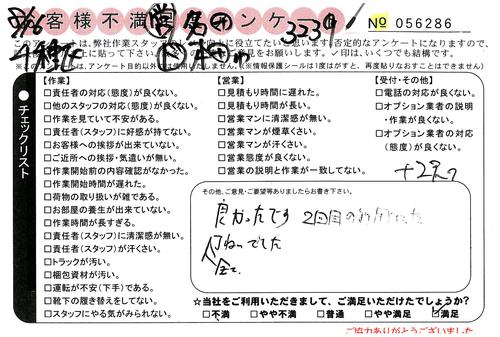 お客様不満足アンケート
No 056286
このアンケートは、弊社作業スタッフ
役立てたいと思います。否定的なアンケートになりますので、
ご意見をお願いします。✓印は、いくつでも結構です。
※このアンケートは、アンケート目的以外
(※情報保護シールは1度はがすと、再度貼りなおすことはできません)
チェックリスト
【作業】
□責任者の対応(態度)が良くない。
□他のスタッフの対応(態度)が良くない。
□作業を見ていて不安がある。
□責任者(スタッフ)に好感が持てない。
□お客様への挨拶が出来ていない。
□ご近所への挨拶・気遣いが無い。
□作業開始前の内容確認がなかった。
□作業開始時間が遅れた。
□荷物の取り扱いが雑である。
□お部屋の養生が出来ていない。
□作業時間が長すぎる。
□責任者(スタッフ)に清潔感が無い。
□責任者(スタッフ)が汗くさい。
□トラックが汚い。
□梱包資材が汚い。
□運転が不安(下手)である。
□靴下の履き替えをしてない。
□スタッフにやる気がみられない。
【営業】
□見積もり時間に遅れた。
□見積もり時間が長い。
□営業マンに清潔感が無い。
□営業マンが煙草くさい。
□営業マンが汗くさい。
□営業態度が良くない。
□営業の説明と作業が一致してない。
【受付・その他】
□電話の対応が良くない。
□オプション業者の説明・作業が良くない。
□オプション業者の対応(態度)が良くない。
その他、ご意見・ご要望等ありましたらお書き下さい。
良かったです 2回目の
☆当社をご利用いただきまして、ご満足いただけたでしょうか?
□不満 □やや不満 □普通 □やや満足 ☑満足
ご協力ありがとうございました